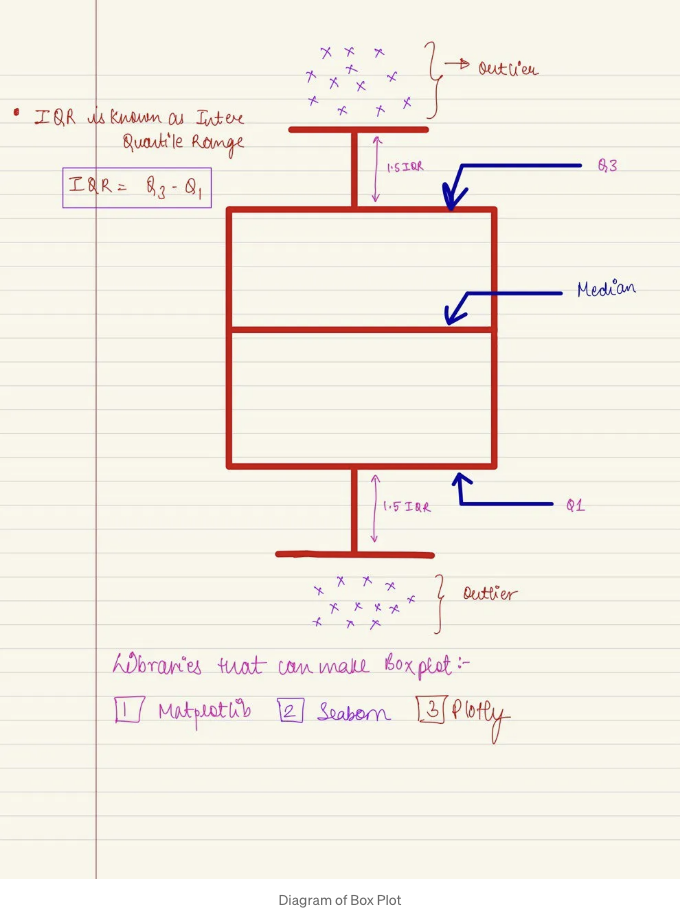 Outlier
• IQR is known as Inter
Quartile Range
IQR = Q3 - Q1
1.5 IQR
Q3
Median
1.5 IQR
Q1
Outlier
Libraries that can make Box plot :-
1 Matplotlib 2 Seaborn 3 Plotly
Diagram of Box Plot